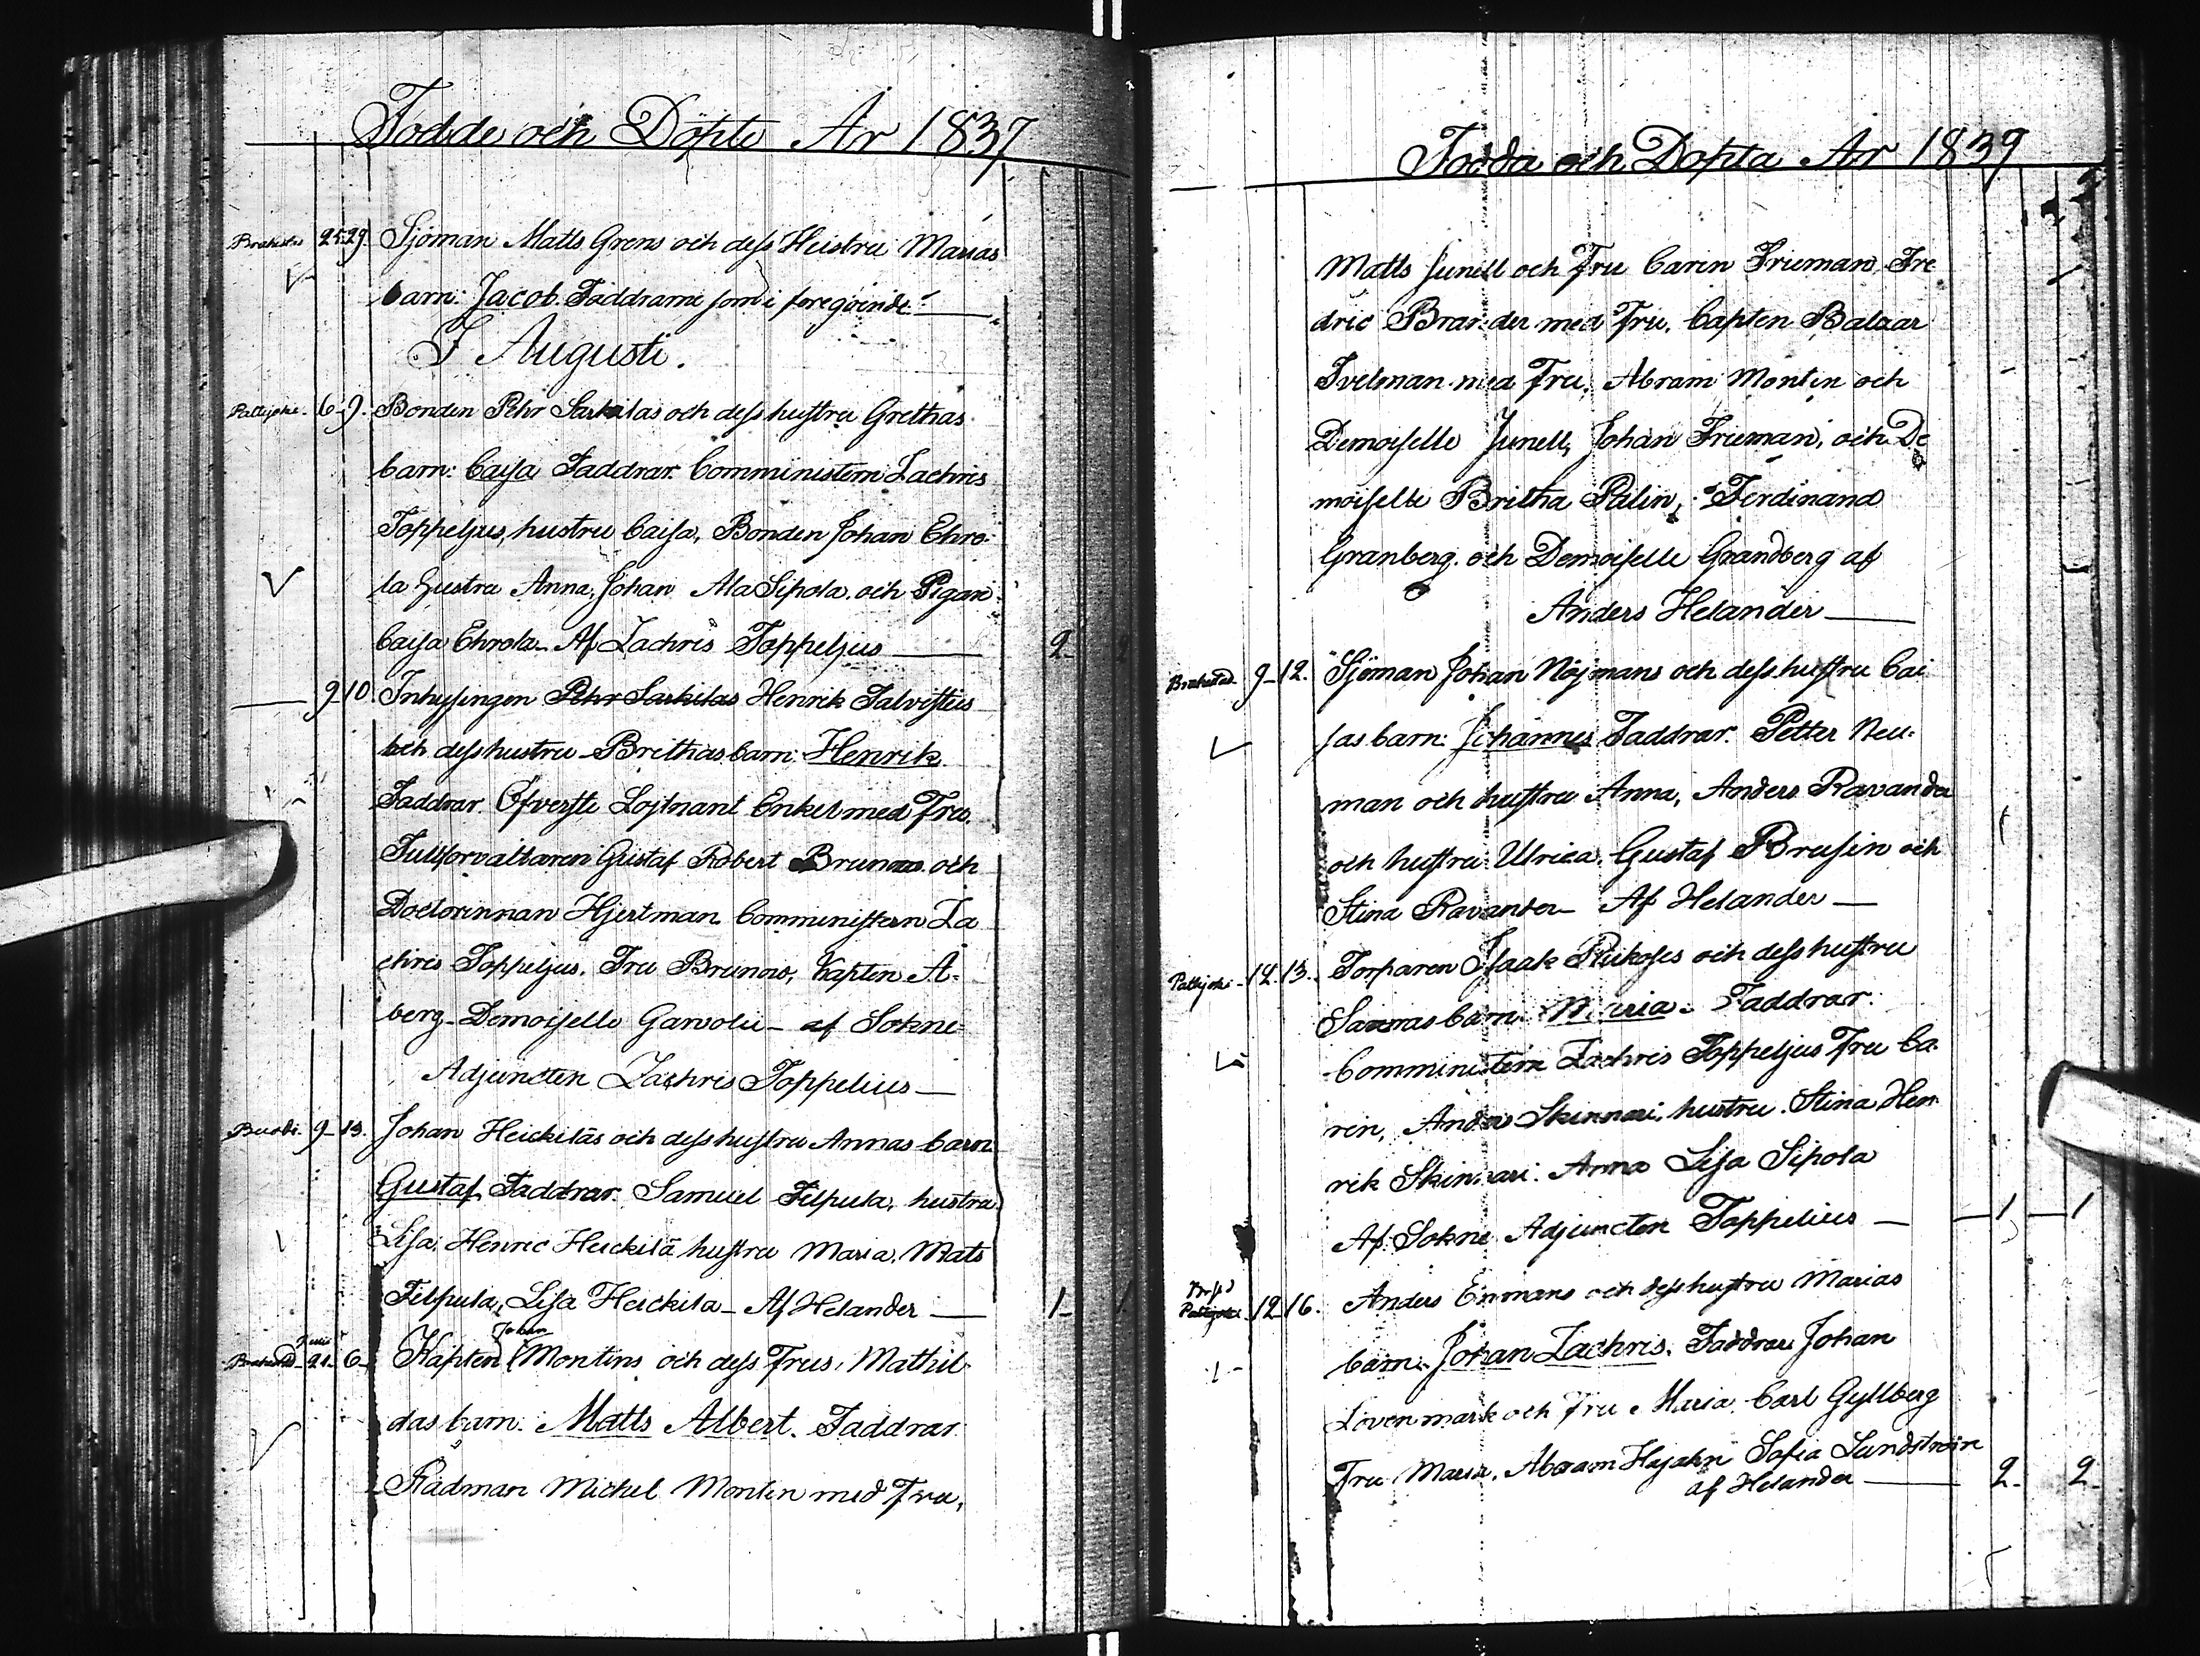 Födde och Döpte År 1837
Brahestad 25. 29. Sjöman Matts Grens och dess Hustru Marias
barn: Jacob. Faddrarne som i foregåinde
I Augusti.
Pattijoki. 6-9. Bonden Pehr Sarkilas och dess hustru Grethas
barn: Caisa Faddrar. Comministern Zachris
Toppeljus, hustru Caisa, Bonden Johan Ehro-
la hustru Anna, Johan Ala Sipola. och Pigan
Caisa Ehrola. Af Zachris Toppeljus — 2-
— 9-10. Inhysingen Pehr Sarkilas Henrik Salvistus
och dess hustru Brithas barn: Henrik
Faddrar. Öfverste Lojtnant Enkel med Fru.
Tullforvaltaren Gustaf Robert Brunow och
Doctorinnan Hjertman Comministern Za
chris Toppeljus. Fru Brunow, Kapten Å-
berg. Demoiselle Garvolii - af Sokne
Adjuncten Zachris Toppelius —
9-13. Johan Heickiläs och dess hustru Annas barn
Gustaf. Faddrar. Samuel Filpula, hustru
Lisa, Henric Heickilä hustru Maria. Mats
Filpula, Lisa Heickila - Af Helander — 1-
Brahestad 21- 6. Kapten Johan Montins och dess Frus, Mathil
das barn: Matts Albert. Faddrar
Rådman Michel Montin med Fru,
Födda och Döpta År 1839
Matts Junell och Fru Carin Frieman Fre
dric Brander med Fru. Capten Baltzar
Svelman med Fru, Abram Montin och
Demoiselle Junell, Johan Frieman, och De
moiselle Britha Palin, Ferdinand
Granberg. och Demoiselle Grandberg af
Anders Helander —
Brahestad 9-12. Sjöman Johan Nöjmans och dess hustru Cai
sas barn: Johannes Faddrar. Petter Neu-
man och hustru Anna, Anders Ravander
och hustru Ulrica. Gustaf Brusin och
Stina Ravander - Af Helander —
Pattijoki - 12. 13. Torparen Isaak Ruikoses och dess hustru
Sannas barn: Maria. Faddrar.
Comministern Zachris Toppeljus Fru Ca
rin, Anders Skinnari, hustru. Stina Hen
rik Skinnari. Anna Lisa Sipola
Af Sokne Adjuncten Toppelius — 1 — 1
Pattijoki 12 16. Anders Enmans och dess hustru Marias
barn: Johan Zachris. Faddrar Johan
Lövenmark och Fru Maria Carl Gyllberg
Fru Maria. Abraam Hajahn Sofia Lundström
af Helander — 2- 2-